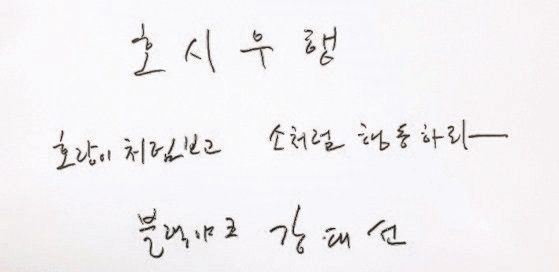 호 시 우 행
호랑이 처럼보고 소처럼 행동하리—
블랙야크 강 태 선